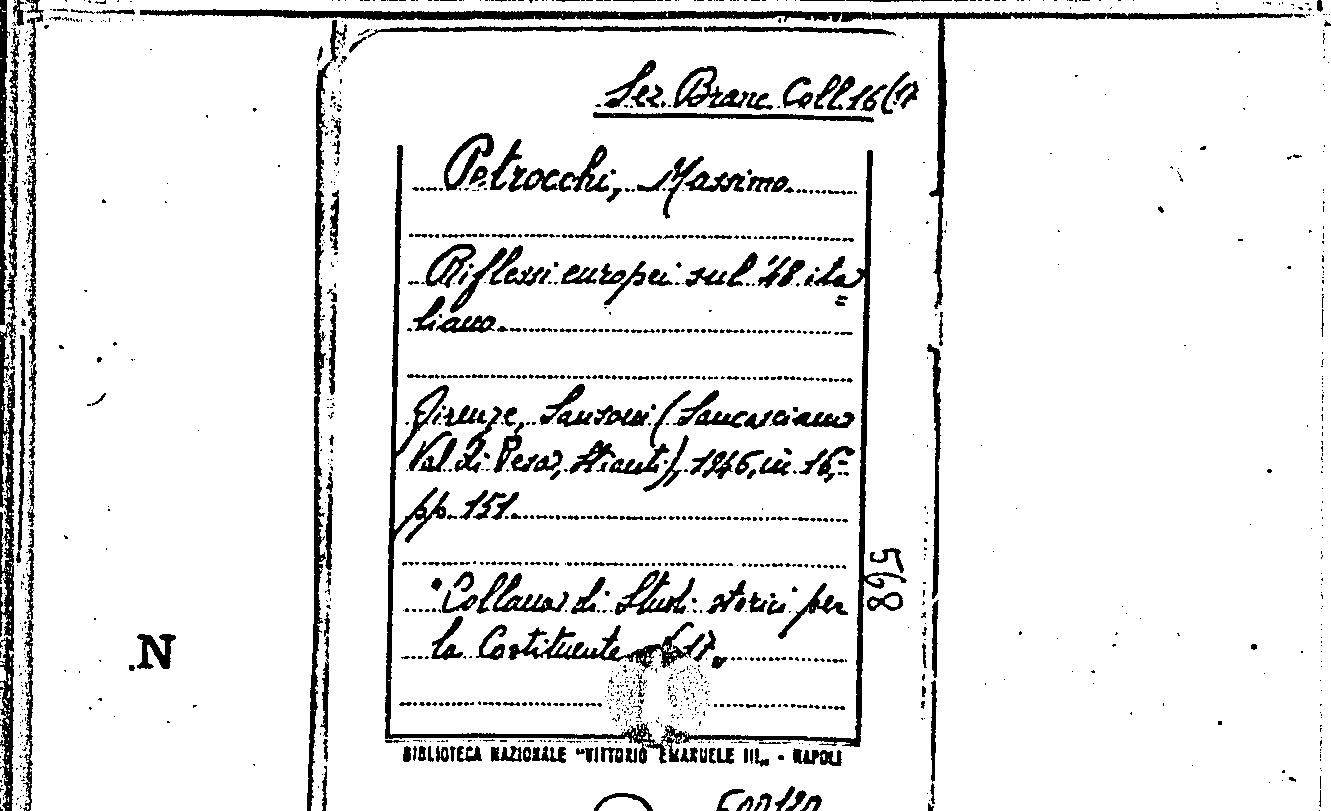 Sez. Branc. Coll. 16 (17
Petrocchi, Massimo
Riflessi europei sul '48 ita=
liano.
Firenze, Sansoni (Sancasciano
Val di Pesa, Stianti), 1946, in 16,
pp. 151.
"Collana di Studi storici per
la Costituente 17„
568
.N
BIBLIOTECA NAZIONALE "VITTORIO EMANUELE III„ - NAPOLI